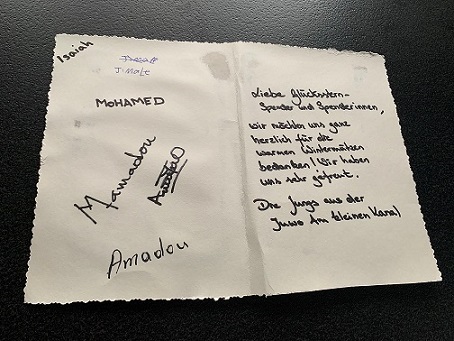 Isaiah
J. Malt
MOHAMED
Mamadou
Amadou
Liebe Glücksstern-
Spender und Spenderinnen,
wir möchten uns ganz
herzlich für die
warmen Wintermützen
bedanken! Wir haben
uns sehr gefreut.
Die Jungs aus der
Juwo Am kleinen Kanal